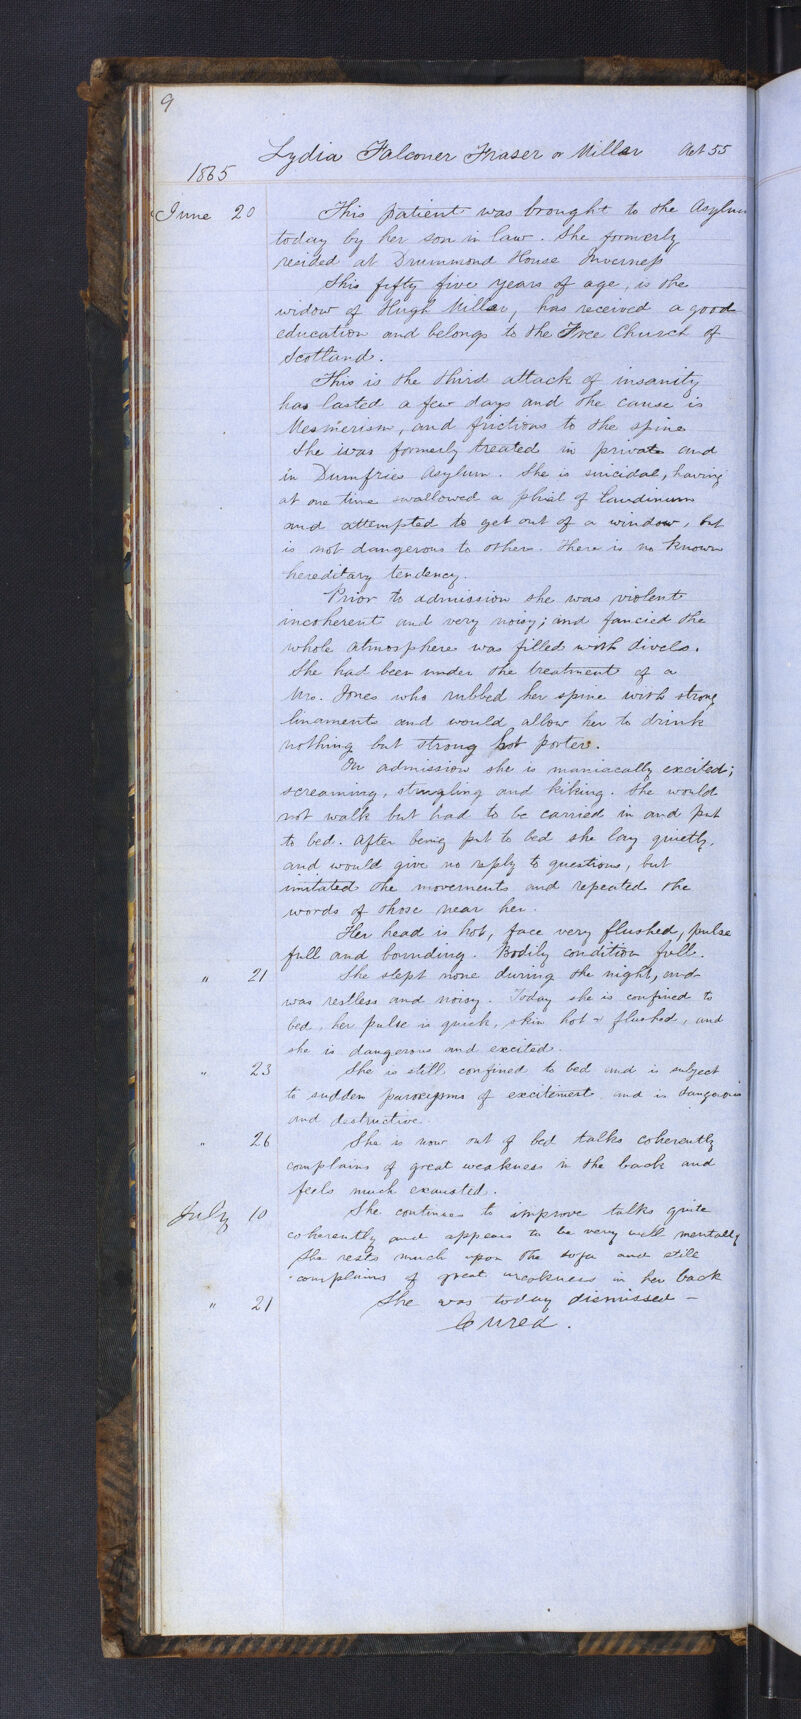 9
Lydia Falconer Fraser or Miller Aet 55
1865
June 20 This patient was brought to the Asylum
today by her son in law. She formerly
resided at Drummond House Inverness
This fifty five years of age, is the
widow of Hugh Miller, has received a good
education and belongs to the Free Church of
Scotland.
This is the third attack of insanity
has lasted a few days and the cause is
Mesmerism, and frictions to the spine
She was formerly treated in private and
in Dumfries Asylum. She is suicidal, having
at one time swallowed a phial of laudinum
and attempted to get out of a window, but
is not dangerous to others. There is no known
hereditary tendency.
Prior to admission she was violent
incoherent and very noisy; and fancied the
whole atmosphere was filled with divels.
She had been under the treatment of a
Mrs. Jones who rubbed her spine with strong
linaments and would allow her to drink
nothing but strong hot porter.
On admission she is maniacally excited;
screaming, strugling and kiking. She would
not walk but had to be carried in and put
to bed. After being put to bed she lay quietly,
and would give no reply to questions, but
imitated the movements and repeated the
words of those near her.
Her head is hot, face very flushed, pulse
full and bounding. Bodily condition full.
" 21 She slept none during the night, and
was restless and noisy. Today she is confined to
bed, her pulse is quick, skin hot & flushed, and
she is dangerous and excited.
" 23 She is still confined to bed and is subject
to sudden paroxysms of excitement and is dangerous
and destructive.
" 26 She is now out of bed talks coherently
complains of great weakness in the back and
feels much exausted.
July 10 She continues to improve talks quite
coherently and appears to be very well mentally
She rests much upon the sofa and still
complains of great weakness in her back
" 21 She was today dismissed -
Cured.